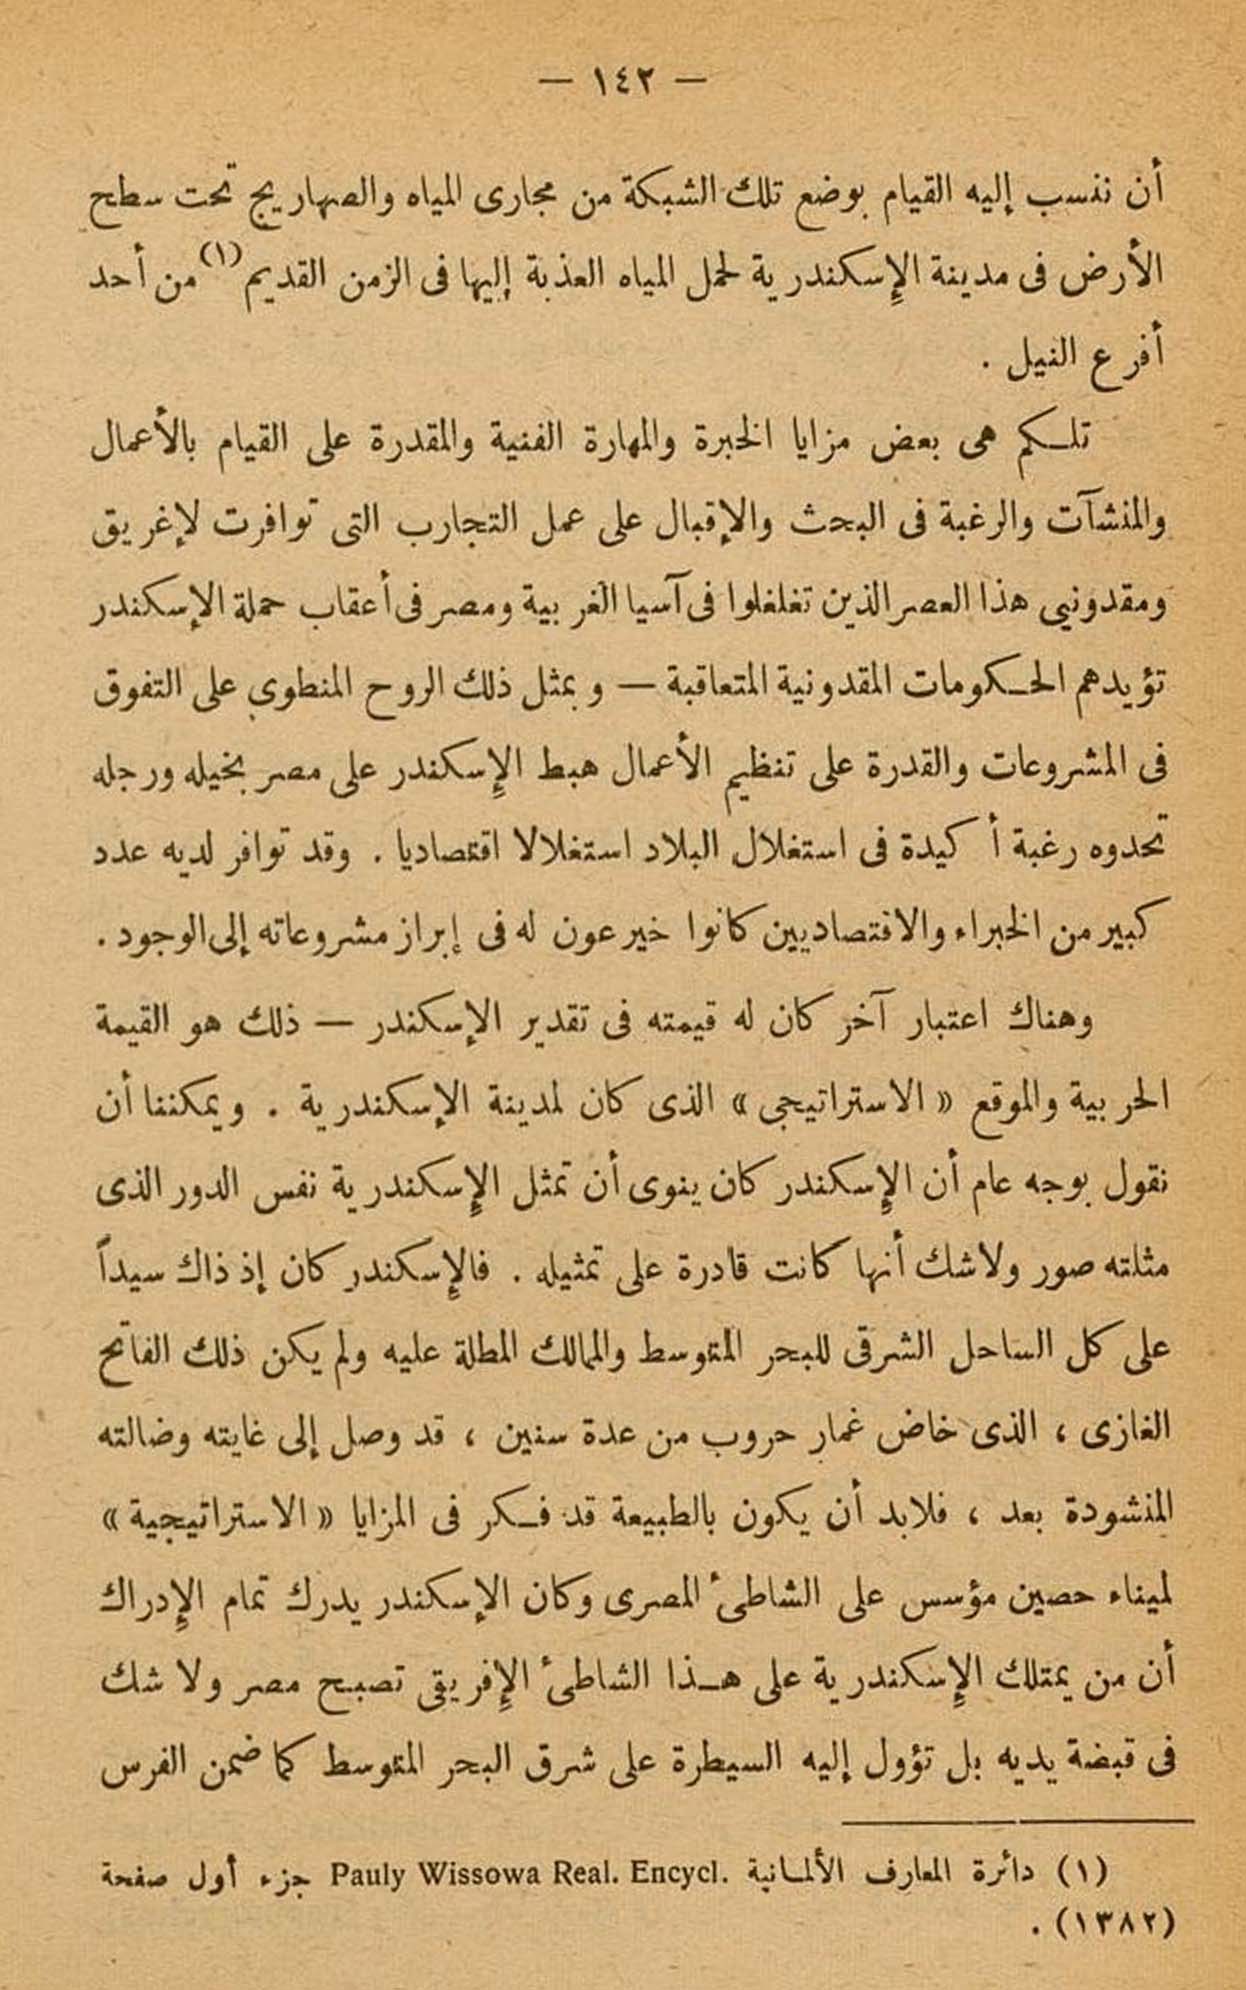 — ١٤٢ —
أن ننسب إليه القيام بوضع تلك الشبكة من مجارى المياه والصهاريج تحت سطح
الأرض فى مدينة الإسكندرية لحمل المياه العذبة إليها فى الزمن القديم (١) من أحد
أفرع النيل .
تلكم هى بعض مزايا الخبرة والمهارة الفنية والمقدرة على القيام بالأعمال
والمنشآت والرغبة فى البحث والإقبال على عمل التجارب التى توافرت لإغريق
ومقدونيى هذا العصر الذين تغلغلوا فى آسيا الغربية ومصر فى أعقاب حملة الإسكندر
تؤيدهم الحكومات المقدونية المتعاقبة — وبمثل ذلك الروح المنطوى على التفوق
فى المشروعات والقدرة على تنظيم الأعمال هبط الإسكندر على مصر بخيله ورجله
تحدوه رغبة أكيدة فى استغلال البلاد استغلالا اقتصاديا . وقد توافر لديه عدد
كبير من الخبراء والاقتصاديين كانوا خير عون له فى إبراز مشروعاته إلى الوجود .
وهناك اعتبار آخر كان له قيمته فى تقدير الإسكندر — ذلك هو القيمة
الحربية والموقع « الاستراتيجى » الذى كان لمدينة الإسكندرية . ويمكننا أن
نقول بوجه عام أن الإسكندر كان ينوى أن تمثل الإسكندرية نفس الدور الذى
مثلته صور ولاشك أنها كانت قادرة على تمثيله . فالإسكندر كان إذ ذاك سيداً
على كل الساحل الشرقى للبحر المتوسط والممالك المطلة عليه ولم يكن ذلك الفاتح
الغازى ، الذى خاض غمار حروب من عدة سنين ، قد وصل إلى غايته وضالته
المنشودة بعد ، فلابد أن يكون بالطبيعة قد فكر فى المزايا « الاستراتيجية »
لميناء حصين مؤسس على الشاطئ المصرى وكان الإسكندر يدرك تمام الإدراك
أن من يمتلك الإسكندرية على هذا الشاطئ الإفريقى تصبح مصر ولا شك
فى قبضة يديه بل تؤول إليه السيطرة على شرق البحر المتوسط كما ضمن الفرس
(١) دائرة المعارف الألمانية Pauly Wissowa Real. Encycl. جزء أول صفحة
(١٣٨٢) .